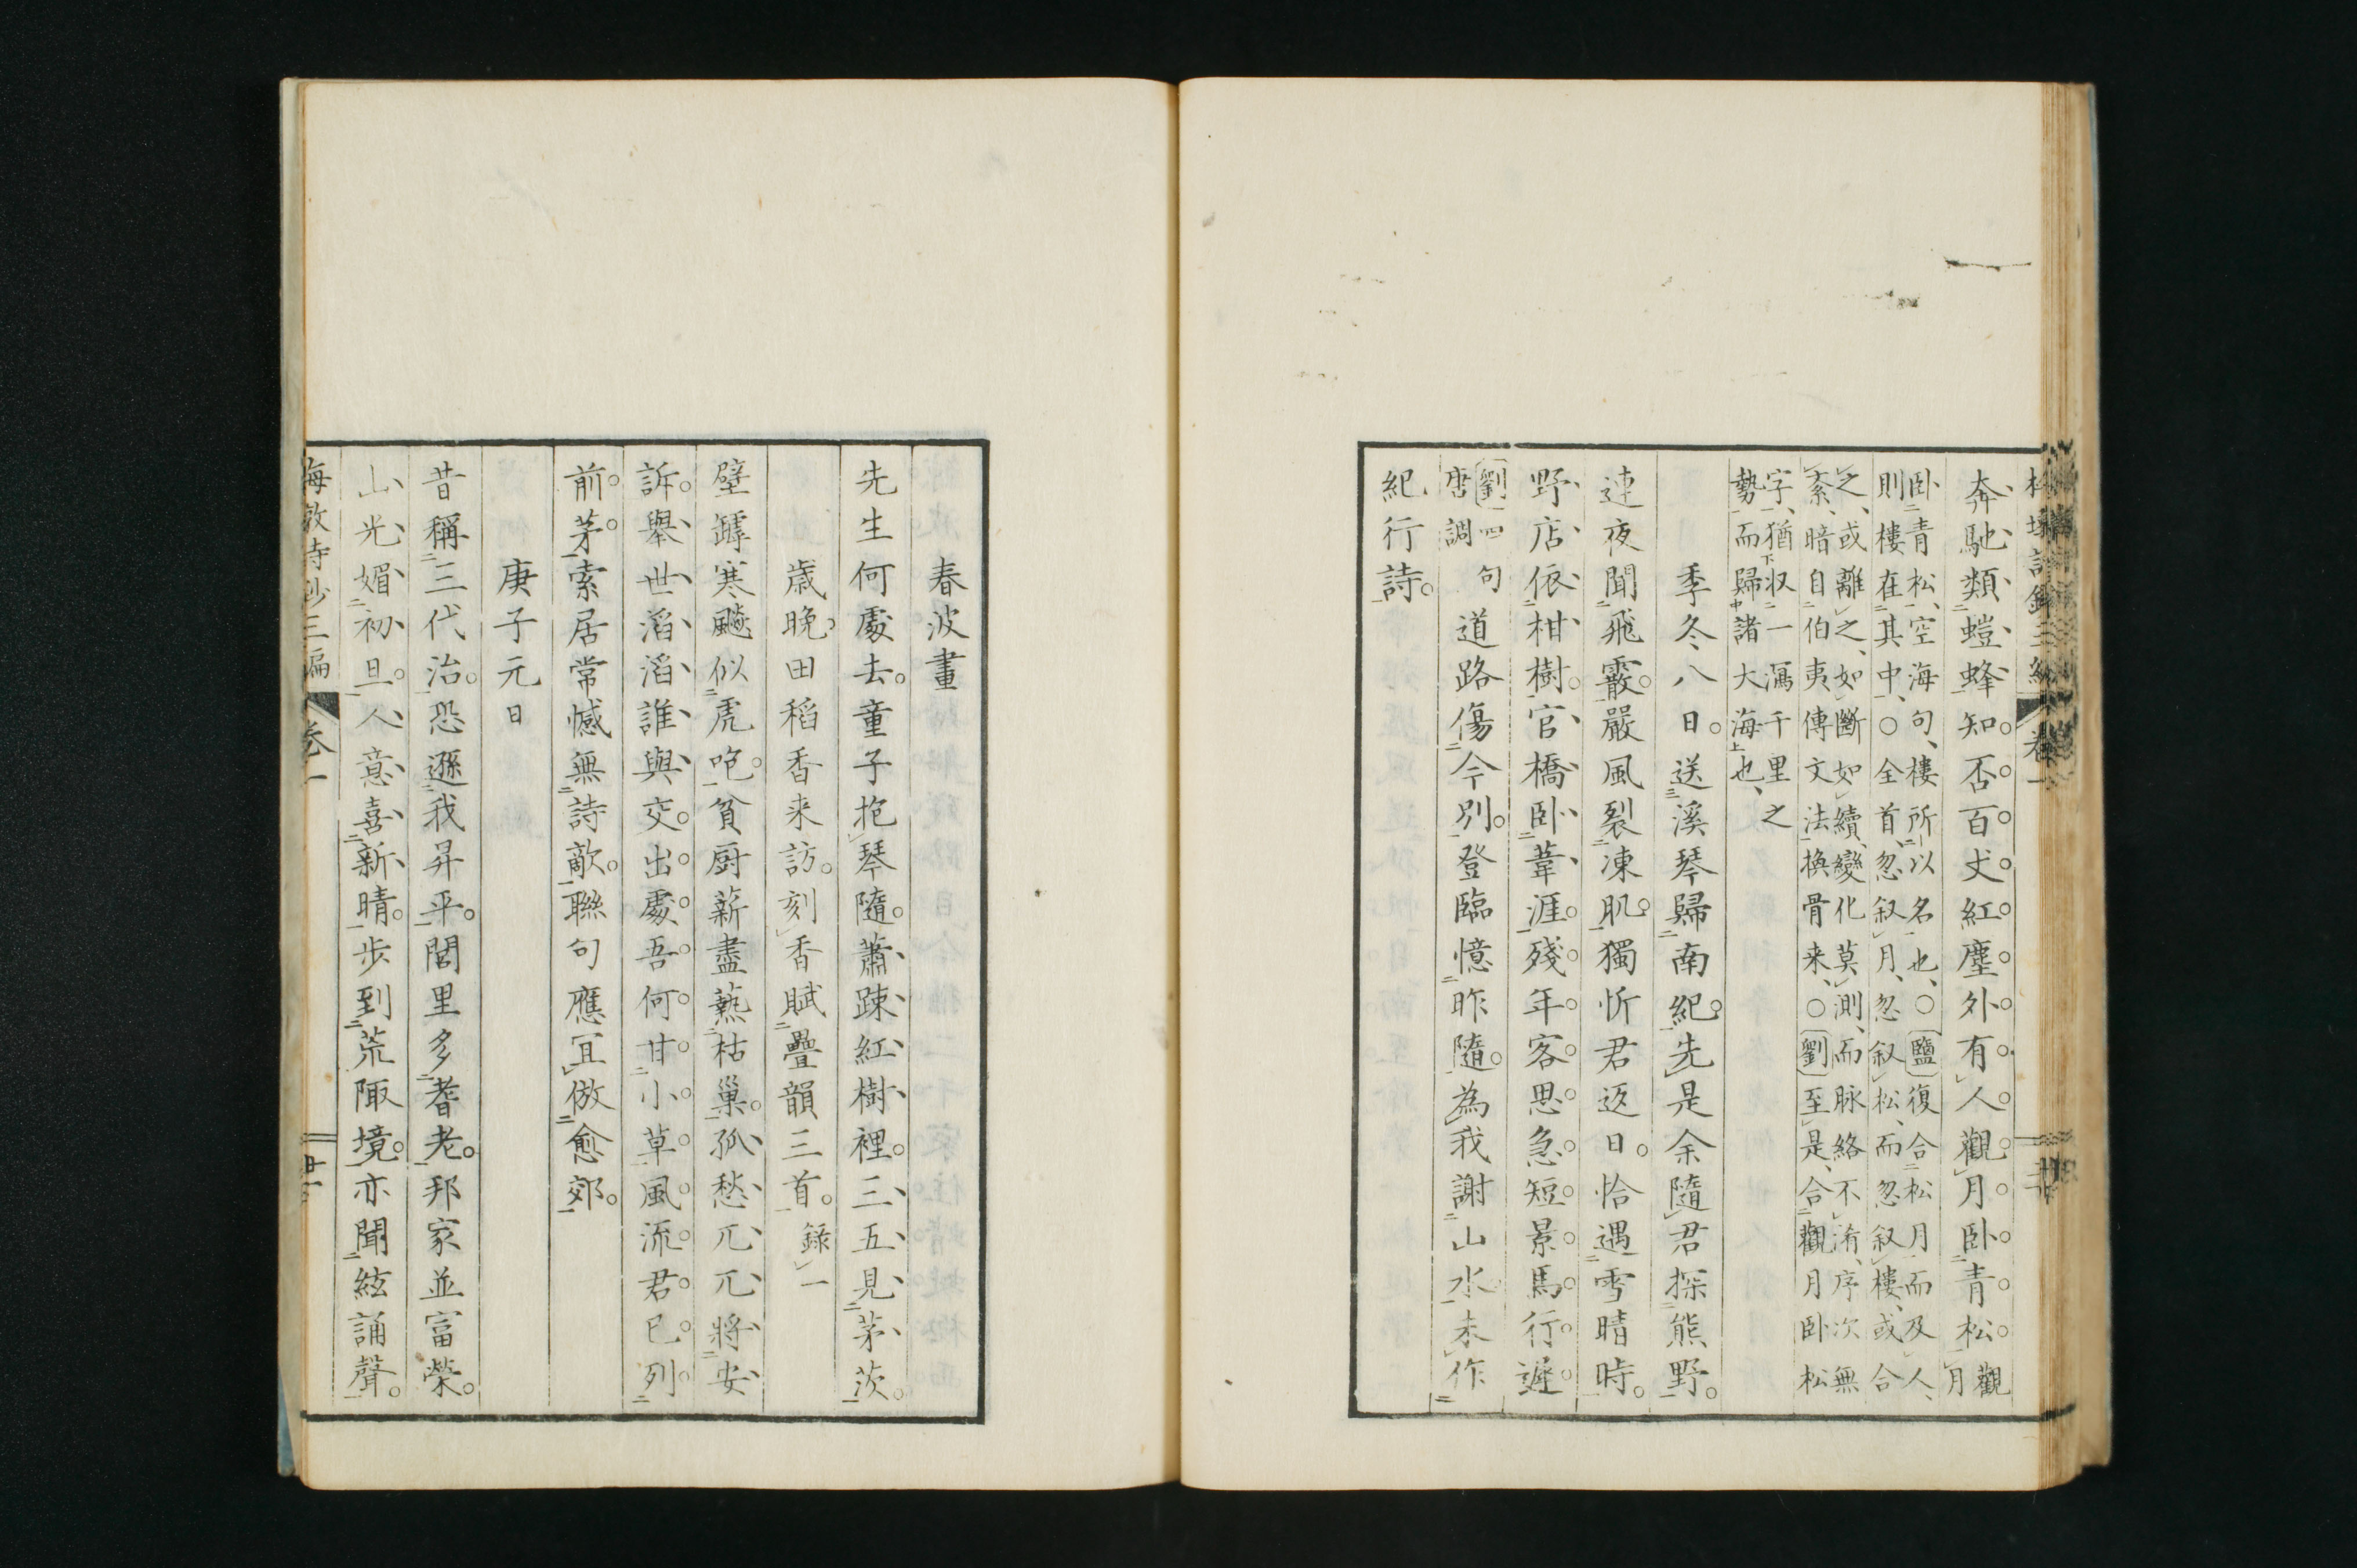 奔馳類螘蜂知否百丈紅塵外有人觀月卧青松觀月
卧青松空海句樓所以名也○鹽復合松月而及人
則樓在其中○全首忽叙月忽叙松而忽叙樓或合
之或離之如斷如續變化莫測而脉絡不淆序次無
紊暗自伯夷傳文法換骨来○劉至是合觀月卧松
字猶収一瀉千里之
勢而歸諸大海也
季冬八日送溪琴歸南紀先是余隨君探熊野
連夜聞飛霰嚴風裂凍肌獨忻君返日恰遇雪晴時
野店依柑樹官橋卧葦涯殘年客思急短景馬行遲
劉四句
唐調
道路傷今別登臨憶昨隨為我謝山水未作
紀行詩
春波畫
先生何處去童子抱琴隨蕭踈紅樹裡三五見茅茨
歳晚田稻香来訪刻香賦疊韻三首錄一
壁罅寒飈似虎咆貧厨薪盡爇枯巢孤愁兀兀將安
訴舉世滔滔誰與交出處吾何甘小草風流君已列
前茅索居常憾無詩敵聯句應冝倣愈郊
庚子元日
昔稱三代治恐遜我昇平閭里多耆老邦家並富榮
山光媚初旦人意喜新晴步到荒陬境亦聞絃誦聲
海敬詩鈔三編 卷一 廿一